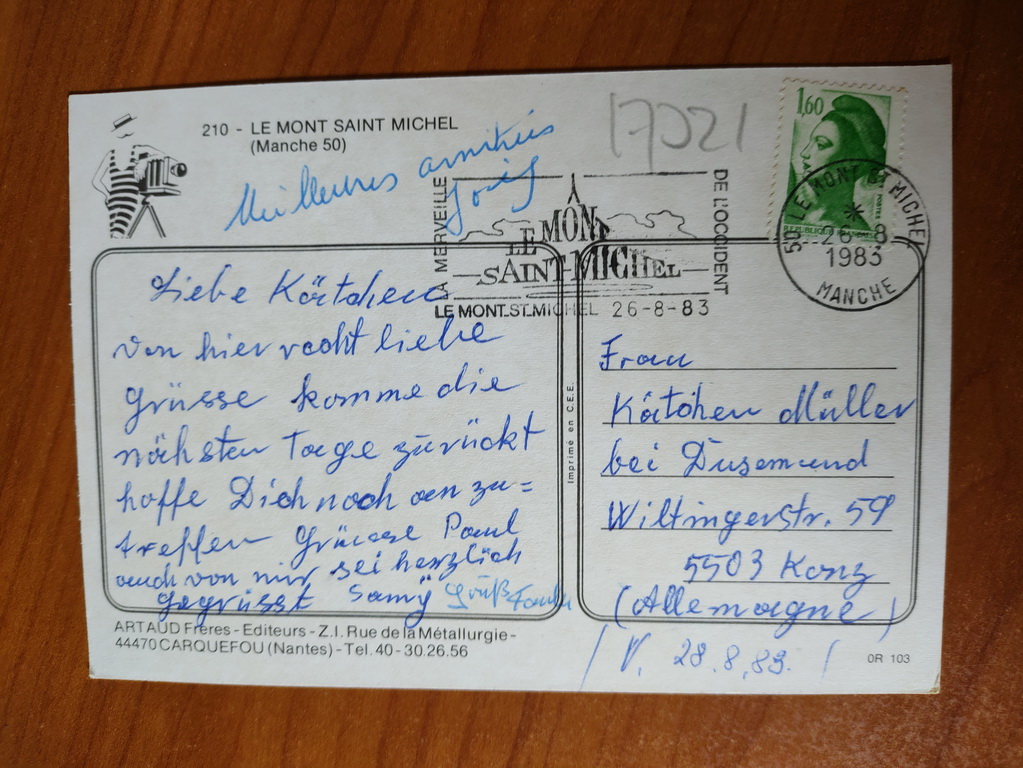 210 - LE MONT SAINT MICHEL
(Manche 50)
Meilleures amitiés
17021
1,60
LA MERVEILLE
LE MONT
SAINT-MICHEL
DE L'OCCIDENT
LE MONT.ST.MICHEL 26-8-83
50 LE MONT ST MICHEL
26-8
1983
MANCHE
Liebe Kätchen
von hier recht liebe
Grüsse komme die
nähsten Tage zurückt
hoffe Dich noch an zu=
treffen Grüsse Paul
auch von mir sei herzlich
gegrüsst Samÿ
Gruß
Imprimé en C.E.E.
Frau
Kätchen Müller
bei Dusemund
Wiltingerstr. 59
5503 Konz
(Allemagne)
ARTAUD Frères - Editeurs - Z.I. Rue de la Métallurgie -
44470 CARQUEFOU (Nantes) - Tel. 40-30.26.56
/ V. 28.8.83. /
OR 103